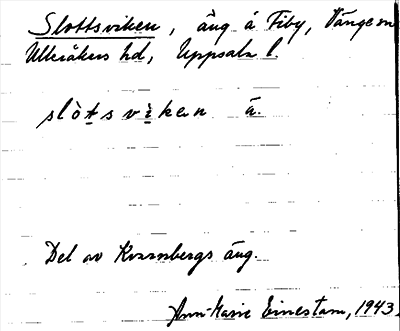 Slottsviken, äng å Fiby, Vänge sn
Ulleråkers hd, Uppsala l.
slòtsvìken ä.
Del av Kvarnbergs äng.
Ann-Marie Einestam, 1943.